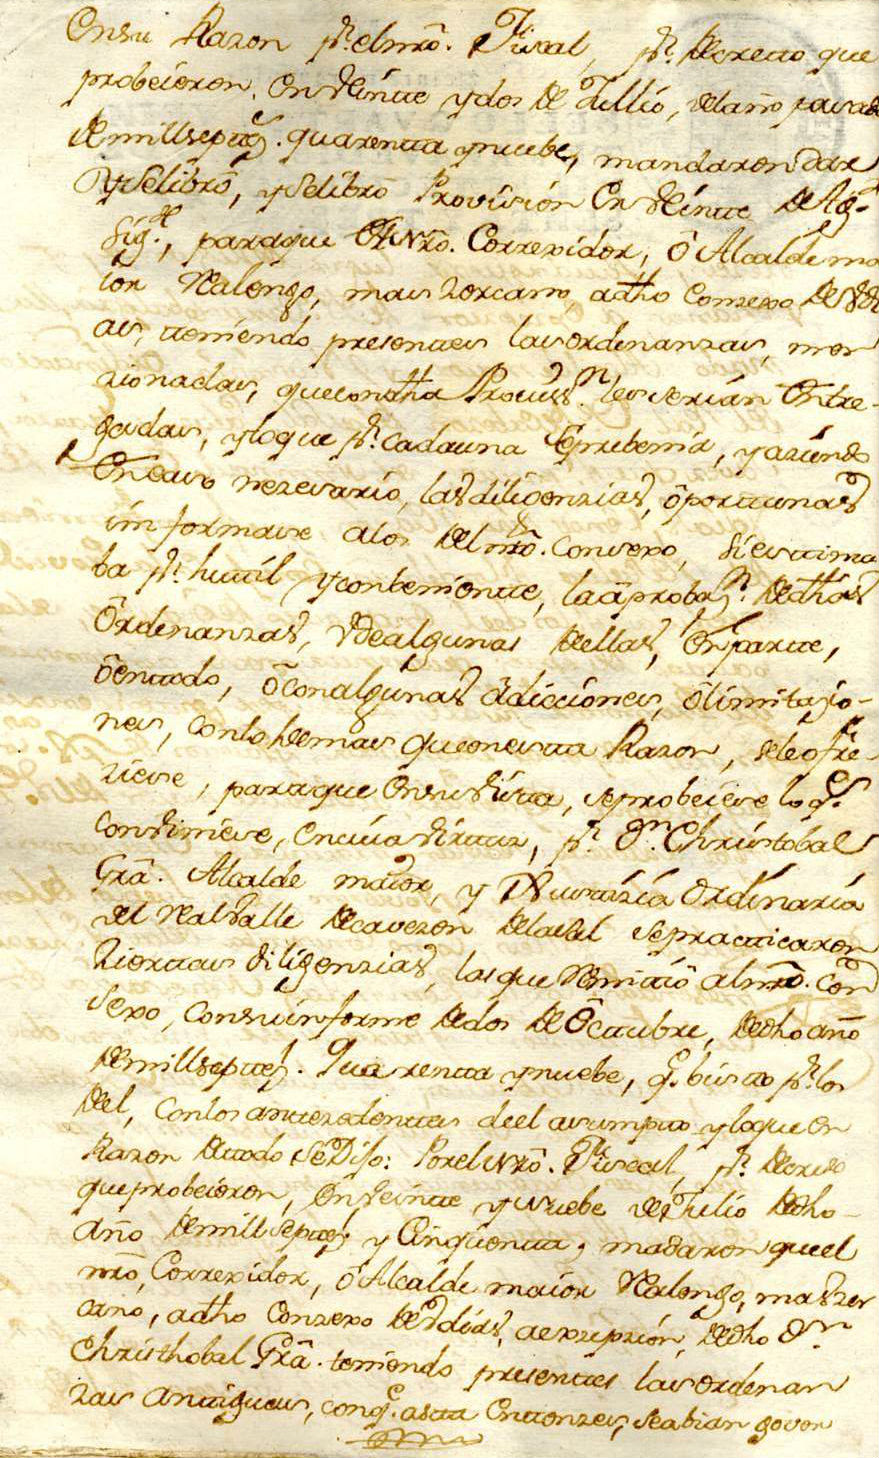 Ensu Razon pr. el nrô. Fiscal, pr. Decreto que
probeieron, en Veinte y dos de Jullio, del año pasado
de mill setezs. quarenta y nuebe, mandaron dar
y se libró, y se libró Provisión en Veinte de Agto.
sigte., para que el nrô. Correxidor, ô Alcalde ma
ior Realengo, mas zercano, adho Conzexo de Vdi
as, teniendo presentes las ordenanzas, men
zionadas, que con dha Provissn. les serían entre-
gadas, y lo que pr. cada una se prebenia, y aziendo
en caso nezesario, las diligenzias, ôportunas
informase a los del nrô. Consexo, si estima
ba pr. hutil y conbeniente, la âprobazn. de dhas
ôrdenanzas, V de algunas de ellas, en parte,
ô en todo, ô con algunas âdicciones, ô limitazio-
nes, con lo demas que en esta Razon, se le ofre-
ziese, para que en su Vista, se probeiese lo qe.
conViniese, en cuia Virtud, pr. Dn. Christobal
Grâ. Alcalde maior, y Justizia ordinaria
del Real Valle de Cavezon de la Sal se practicaron
Ziertas diligenzias, las que Remitiô al nrô. Con
sexo, con su informe de dos de ôctubre, de dho año
de mill setezs. quarenta y nuebe, qe. bisto pr. los
del, con los antezedentes de el asumpto y lo que en
Razon de todo se Dijo: Por el nrô. Fiscal, pr. Decreto
que probeieron, en Veinte y nuebe de Julio de dho
año de mill setezs. y Cinquenta, madaron que el
nrô, Correxidor, ô Alcalde maior Realengo, mas zer
cano, adho Conzexo de Vdias, a exzepzión, de dho Dn.
Christhobal Grâ. teniendo presentes las ordenan
zas antiguas, con qe. asta entonzes, se abian gover